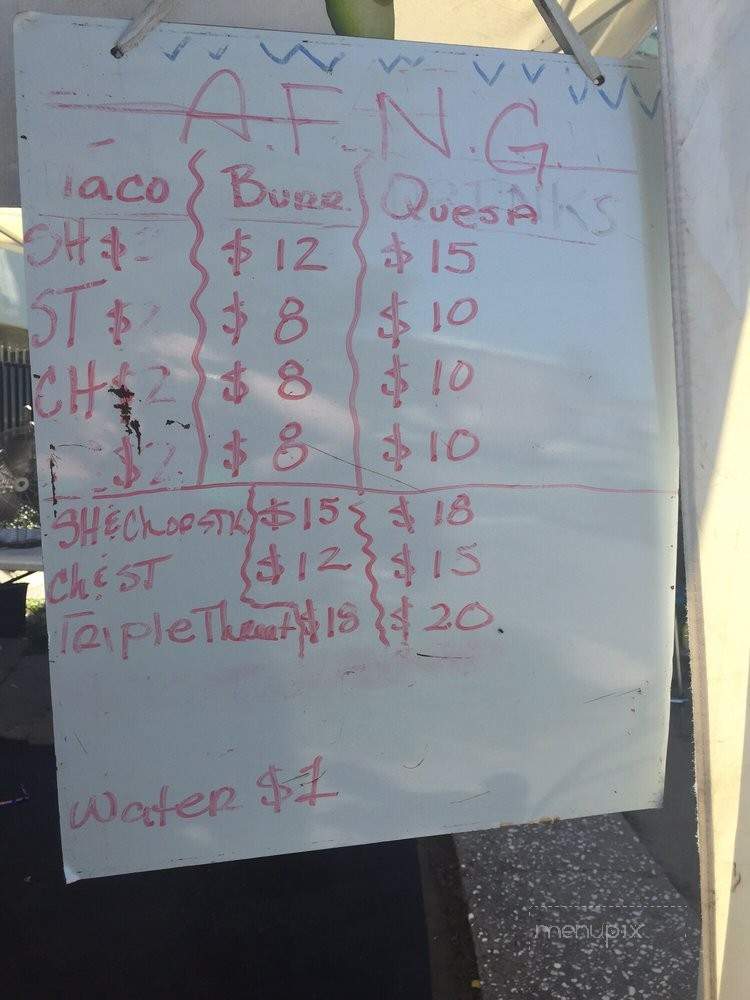 A.F.N.G.
Taco Burr. Quesa
SH $ $12 $15
ST $2 $8 $10
CH $2 $8 $10
$2 $8 $10
SH & Ch or STK $15 $18
Ch & ST $12 $15
Triple Threat $18 $20
Water $1
menupix